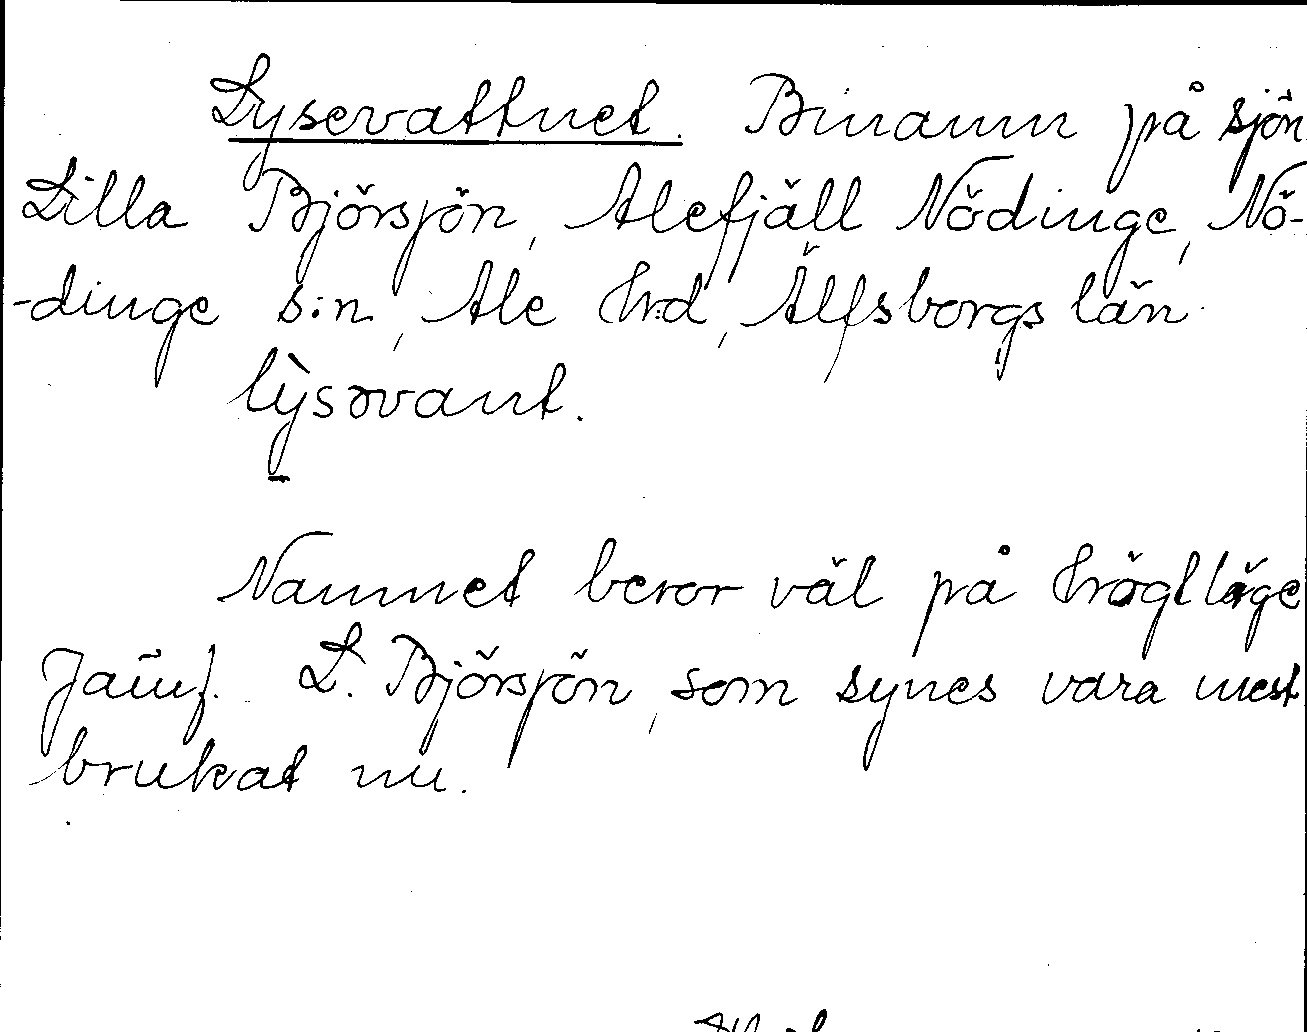 Lysevattnet. Binamn på sjön
Lilla Björsjön, Alefjäll Nödinge, Nö-
-dinge s:n, Ale h:d, Älfsborgs län.
lỳsəvant.
Namnet beror väl på högt läge
Jämf. L. Björsjön, som synes vara mest
brukat nu.